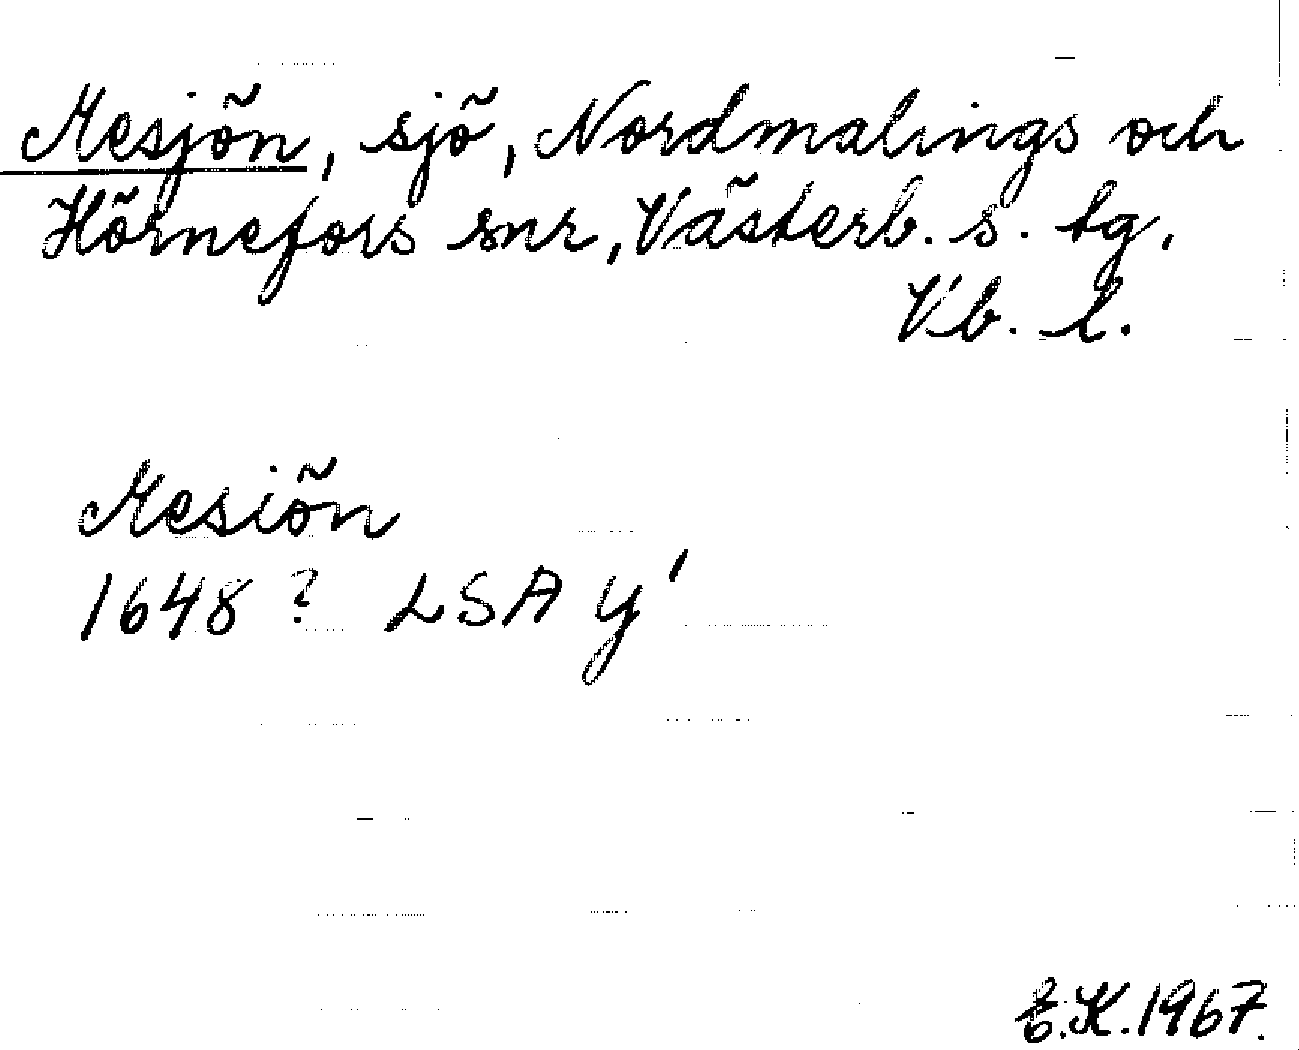 Mesjön, sjö, Nordmalings och
Hörnefors snr, Västerb. s. tg,
Vb. l.
Mesiön
1648? LSA y'
E.K. 1967.